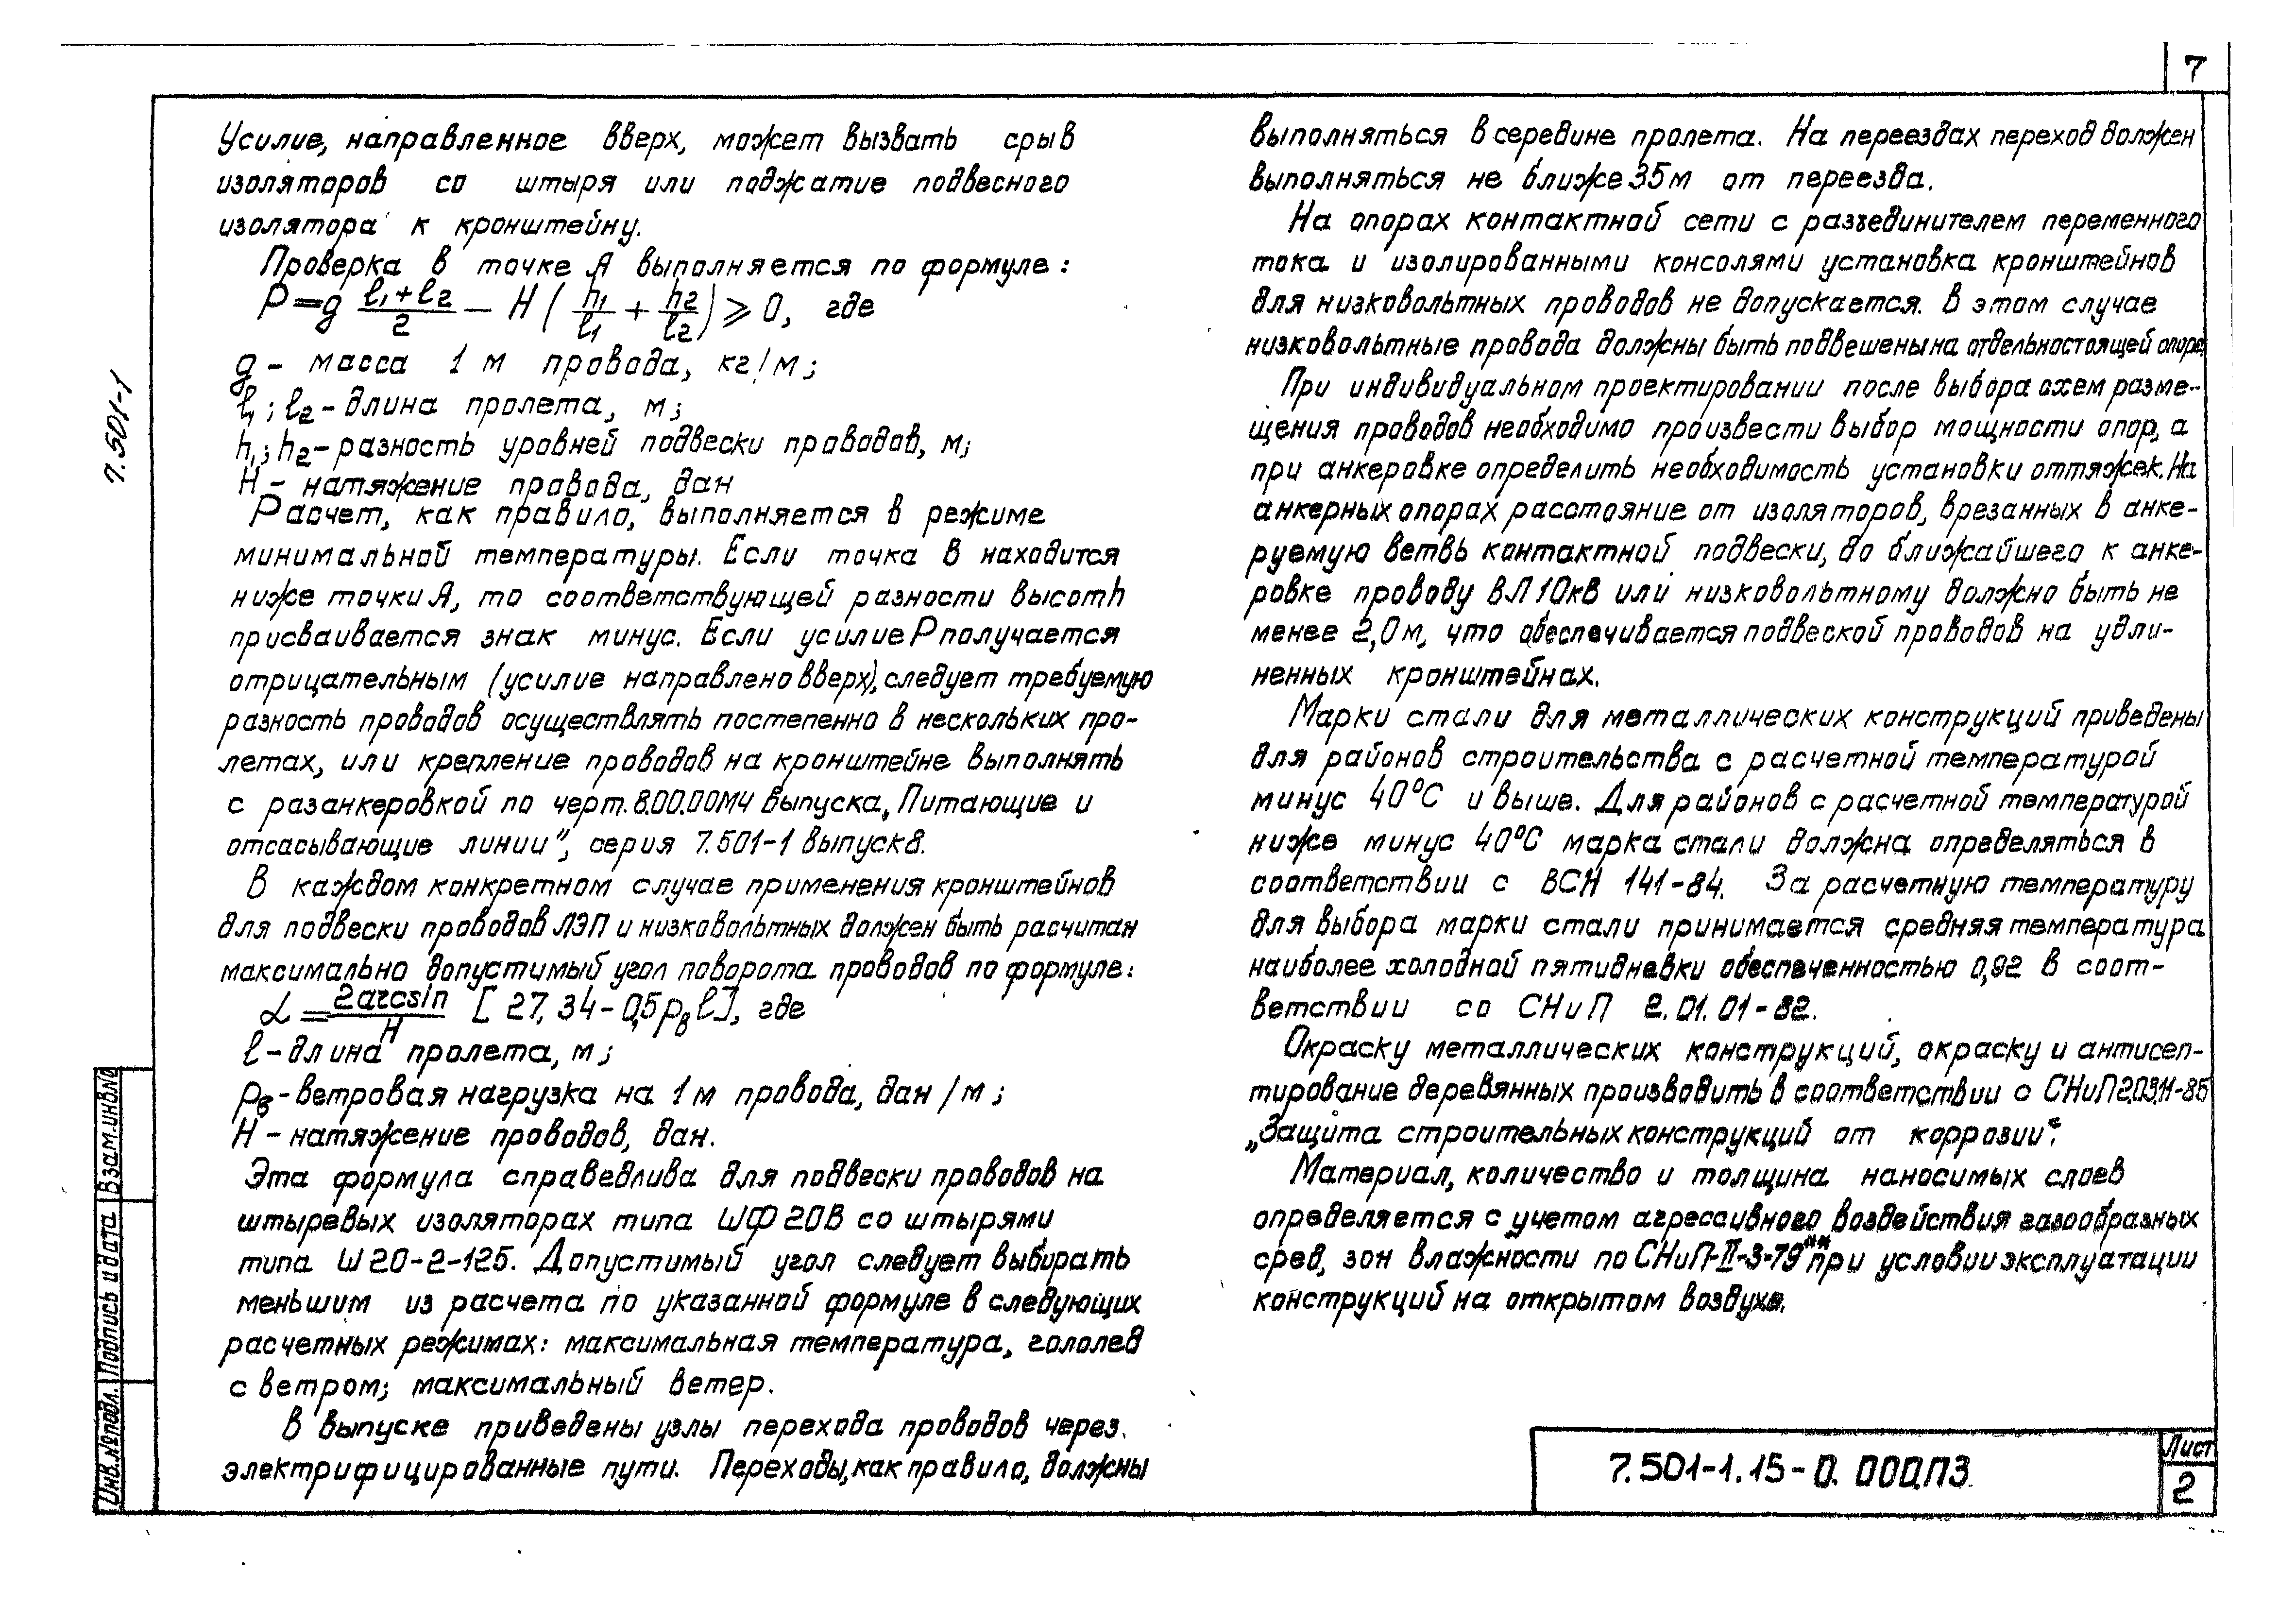 7
7.501-1
Усилие, направленное вверх, может вызвать срыв
изоляторов со штыря или поджатие подвесного
изолятора к кронштейну.
Проверка в точке А выполняется по формуле:
P=g (l₁+l₂)/2 - H (h₁/l₁ + h₂/l₂) ⩾ 0, где
g - масса 1 м провода, кг/м;
l₁; l₂ - длина пролета, м;
h₁; h₂ - разность уровней подвески проводов, м;
H - натяжение провода, дан
Расчет, как правило, выполняется в режиме
минимальной температуры. Если точка В находится
ниже точки А, то соответствующей разности высот h
присваивается знак минус. Если усилие Р получается
отрицательным (усилие направлено вверх), следует требуемую
разность проводов осуществлять постепенно в нескольких про-
летах, или крепление проводов на кронштейне выполнять
с разанкеровкой по черт. 8.00.00МЧ выпуска „Питающие и
отсасывающие линии", серия 7.501-1 выпуск 8.
В каждом конкретном случае применения кронштейнов
для подвески проводов ЛЭП и низковольтных должен быть расчитан
максимально допустимый угол поворота проводов по формуле:
α = 2arcsin/H [27,34 - 0,5pвl], где
l - длина пролета, м;
pв - ветровая нагрузка на 1 м провода, дан/м;
H - натяжение проводов, дан.
Эта формула справедлива для подвески проводов на
штыревых изоляторах типа ШФ20В со штырями
типа Ш20-2-125. Допустимый угол следует выбирать
меньшим из расчета по указанной формуле в следующих
расчетных режимах: максимальная температура, гололед
с ветром; максимальный ветер.
В выпуске приведены узлы перехода проводов через
электрифицированные пути. Переходы, как правило, должны
выполняться в середине пролета. На переездах переход должен
выполняться не ближе 35 м от переезда.
На опорах контактной сети с разъединителем переменного
тока и изолированными консолями установка кронштейнов
для низковольтных проводов не допускается. В этом случае
низковольтные провода должны быть подвешены на отдельностоящей опоре
При индивидуальном проектировании после выбора схем разме-
щения проводов необходимо произвести выбор мощности опор, а
при анкеровке определить необходимость установки оттяжек. На
анкерных опорах расстояние от изоляторов, врезанных в анке-
руемую ветвь контактной подвески, до ближайшего к анке-
ровке проводу ВЛ 10кВ или низковольтному должно быть не
менее 2,0 м, что обеспечивается подвеской проводов на удли-
ненных кронштейнах.
Марки стали для металлических конструкций приведены
для районов строительства с расчетной температурой
минус 40°С и выше. Для районов с расчетной температурой
ниже минус 40°С марка стали должна определяться в
соответствии с ВСН 141-84. За расчетную температуру
для выбора марки стали принимается средняя температура
наиболее холодной пятидневки обеспеченностью 0,92 в соот-
ветствии со СНиП 2.01.01-82.
Окраску металлических конструкций, окраску и антисеп-
тирование деревянных производить в соответствии с СНиП 2.03.11-85
„Защита строительных конструкций от коррозии".
Материал, количество и толщина наносимых слоев
определяется с учетом агрессивного воздействия газообразных
сред, зон влажности по СНиП-II-3-79** при условии эксплуатации
конструкций на открытом воздухе.
Инв.№подл. Подпись и дата Взам.инв.№
7.501-1.15-0.000ПЗ
Лист
2